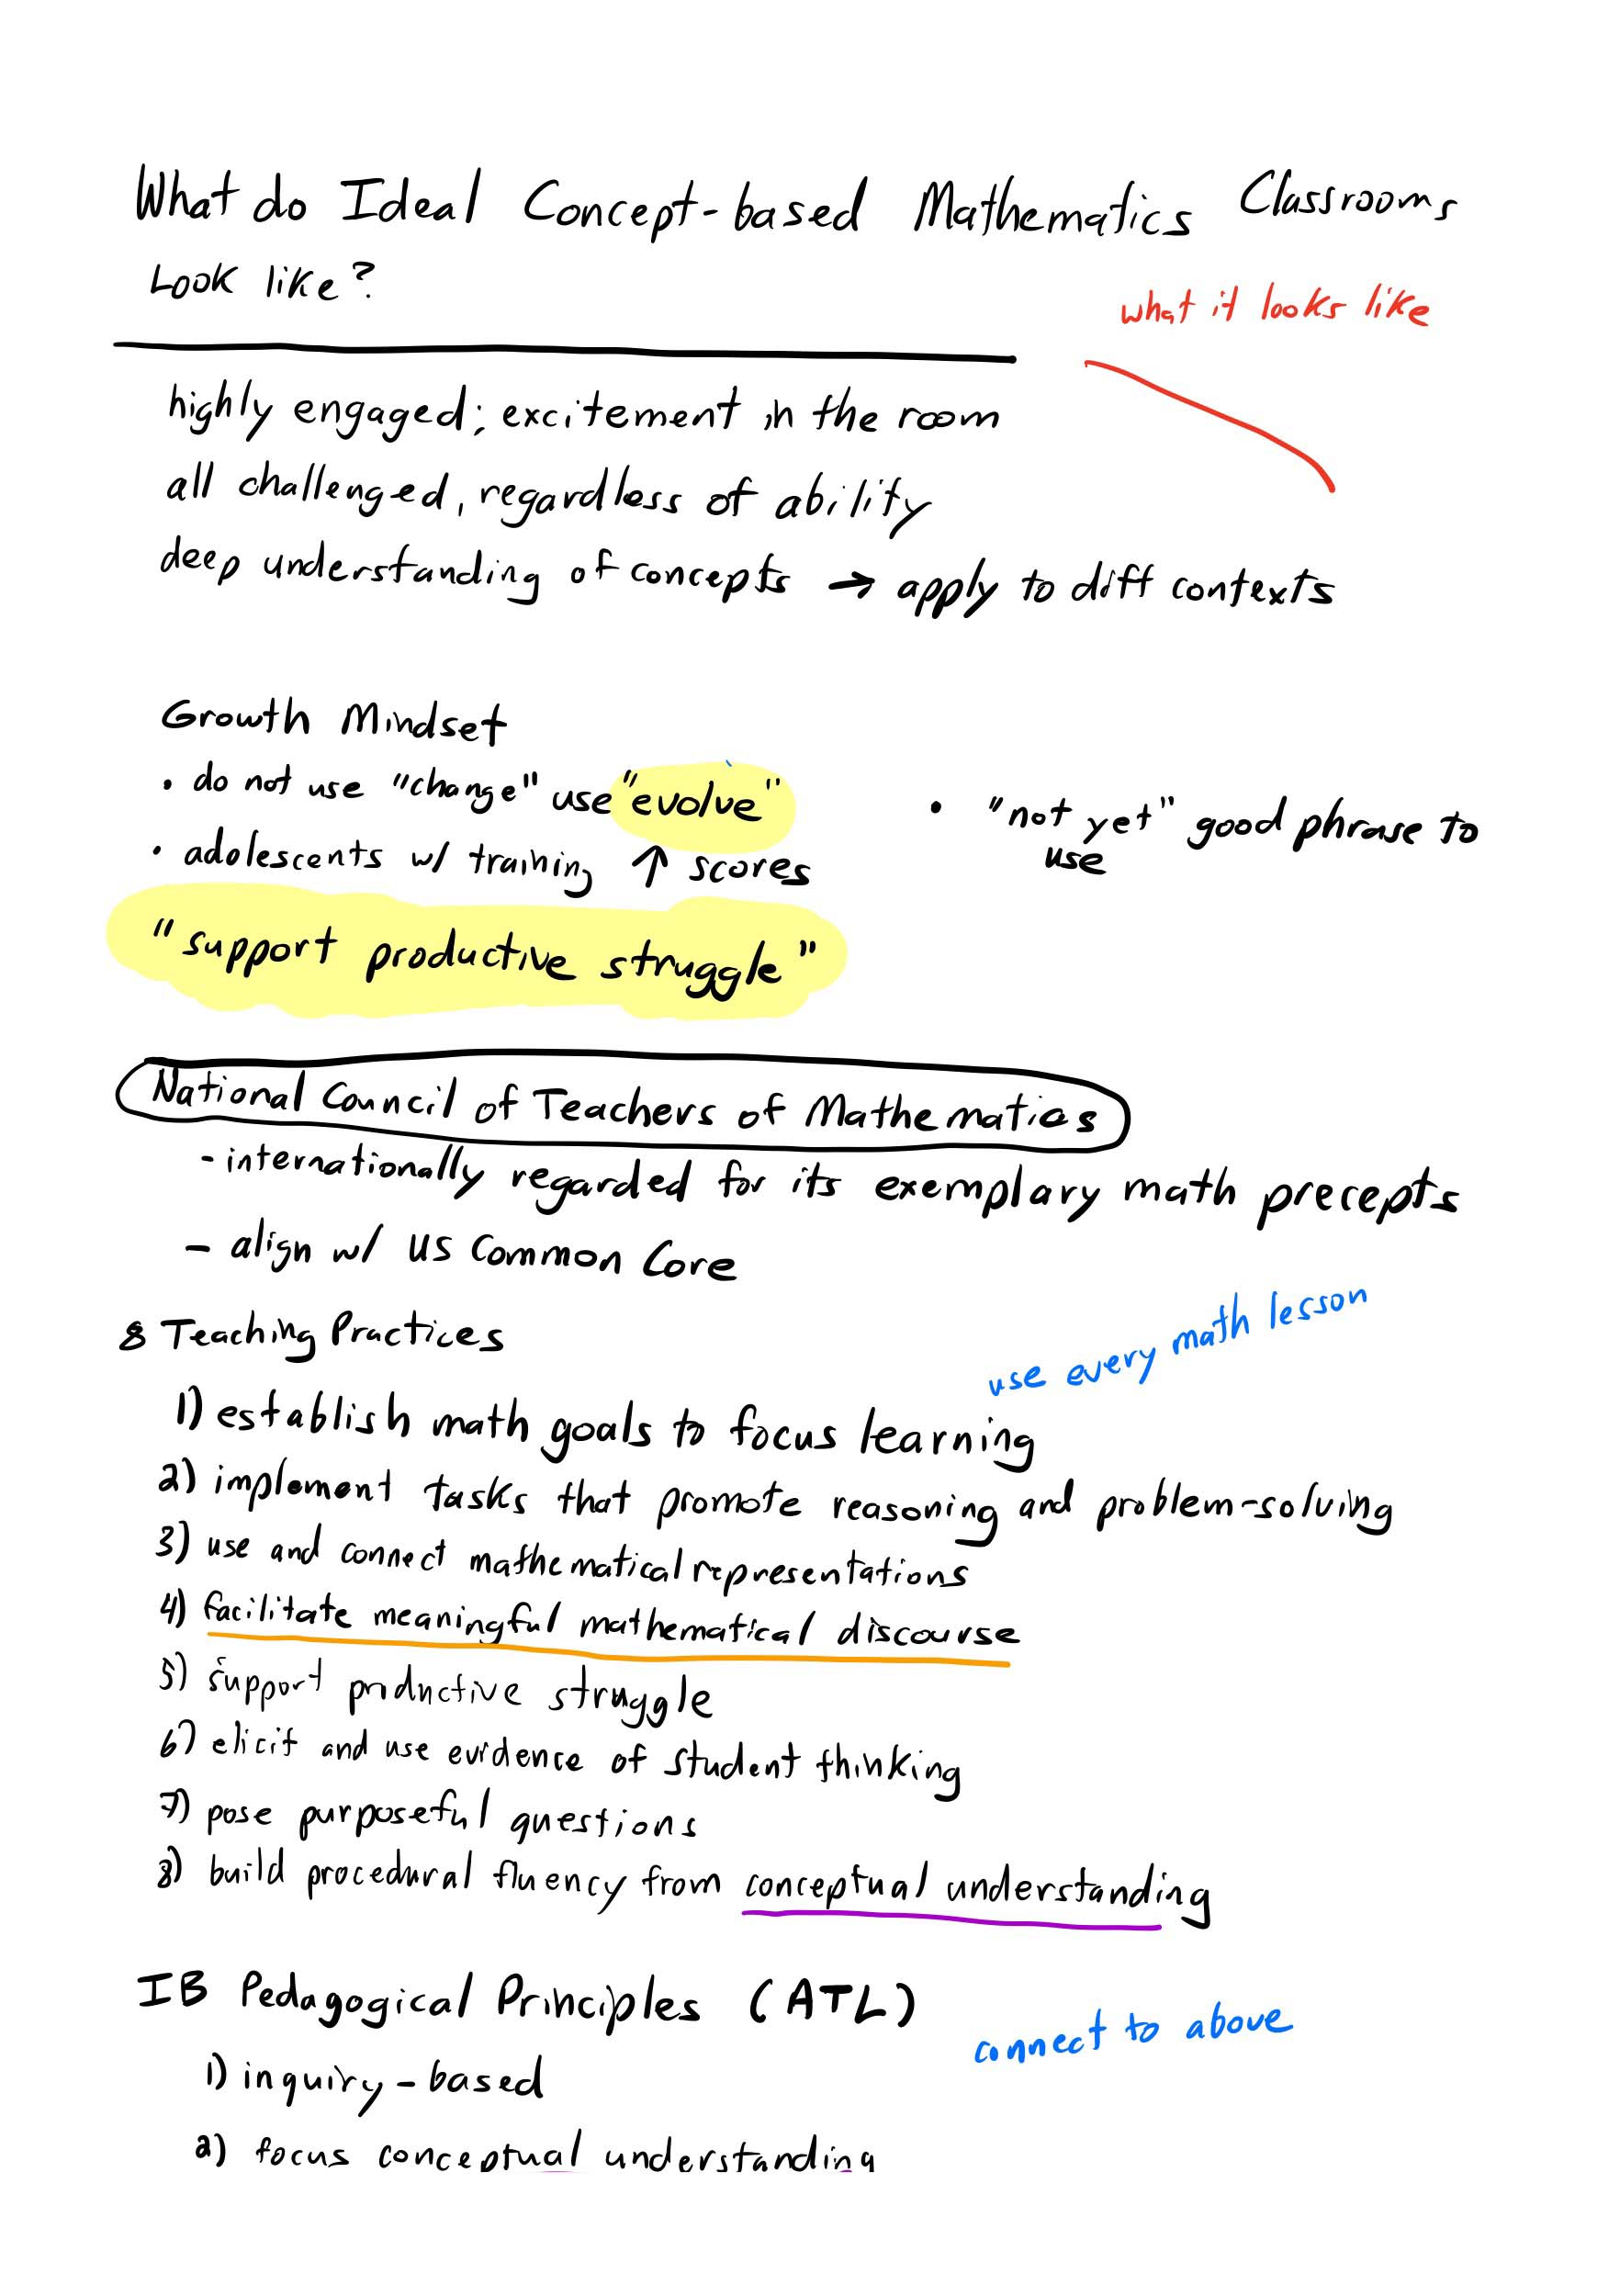 What do Ideal Concept-based Mathematics Classrooms
Look like?
what it looks like
highly engaged; excitement in the room
all challenged, regardless of ability
deep understanding of concepts → apply to diff contexts
Growth Mindset
• do not use "change" use "evolve"
• adolescents w/ training ↑ scores
• "not yet" good phrase to
use
"support productive struggle"
National Council of Teachers of Mathematics
- internationally regarded for its exemplary math precepts
- align w/ US Common Core
8 Teaching Practices
use every math lesson
1) establish math goals to focus learning
2) implement tasks that promote reasoning and problem-solving
3) use and connect mathematical representations
4) facilitate meaningful mathematical discourse
5) support productive struggle
6) elicit and use evidence of student thinking
7) pose purposeful questions
8) build procedural fluency from conceptual understanding
IB Pedagogical Principles (ATL)
connect to above
1) inquiry-based
2) focus conceptual understanding